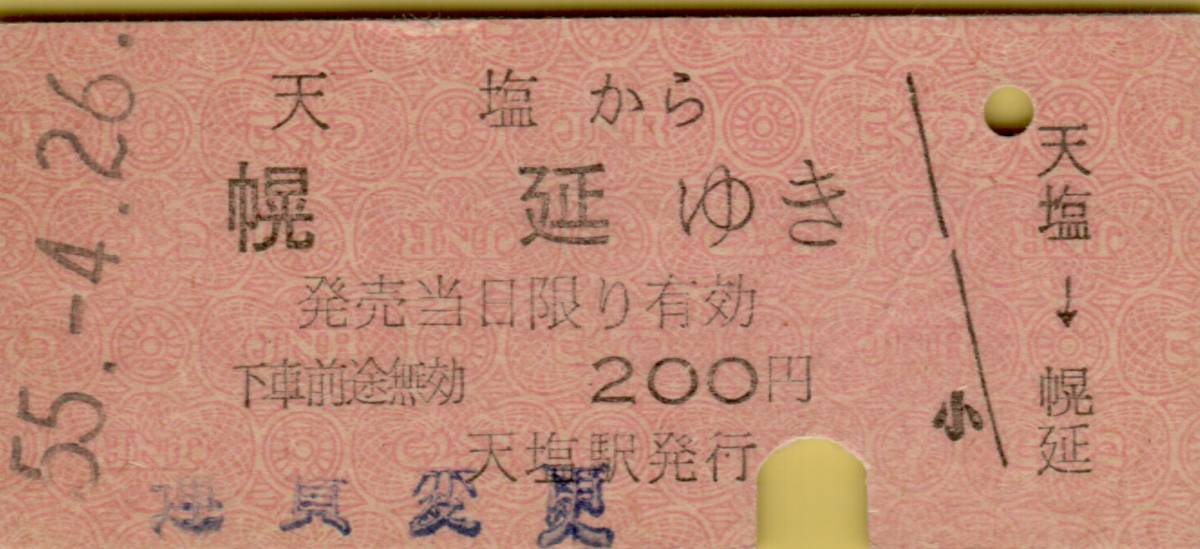 55.-4.26.
天塩から
幌延ゆき
発売当日限り有効
下車前途無効 200円
天塩駅発行
運賃変更
小
天塩→幌延